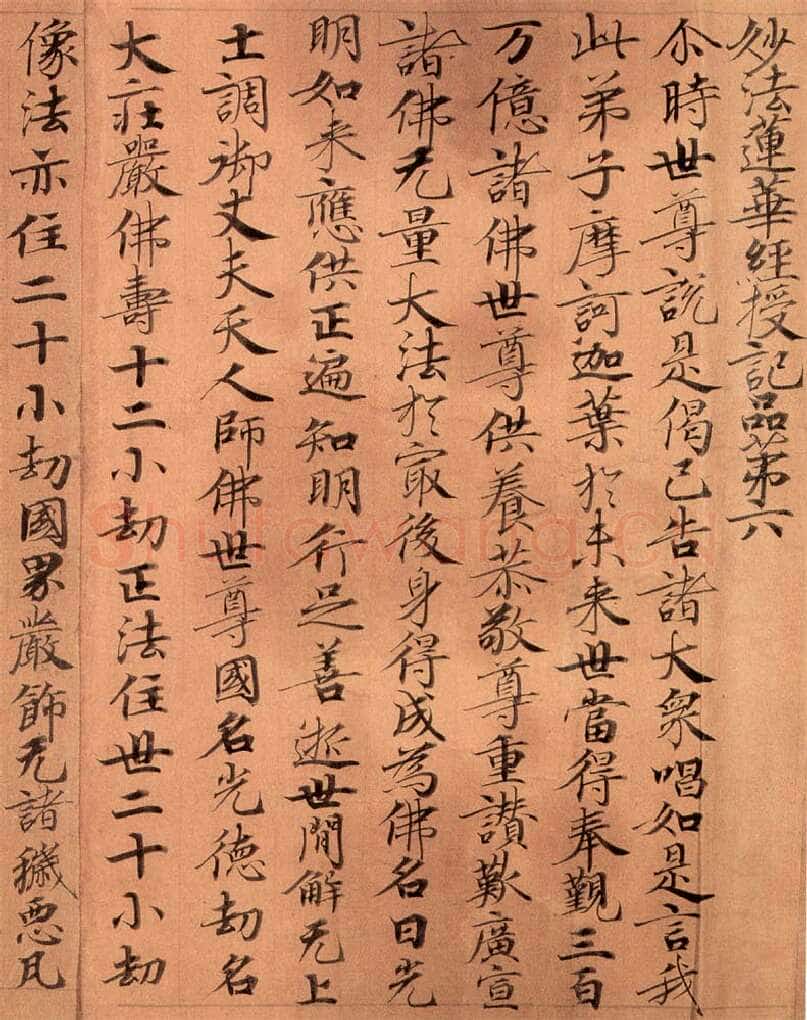 妙法蓮華經授記品第六
尒時世尊説是偈已告諸大衆唱如是言我
此弟子摩訶迦葉於未来世當得奉觐三百
万億諸佛世尊供養恭敬尊重讃歎廣宣
諸佛无量大法於冣後身得成為佛名曰光
明如来應供正遍知明行足善逝世間解无上
士調御丈夫天人師佛世尊國名光徳劫名
大莊嚴佛壽十二小劫正法住世二十小劫
像法亦住二十小劫國界嚴飾无諸穢惡凡